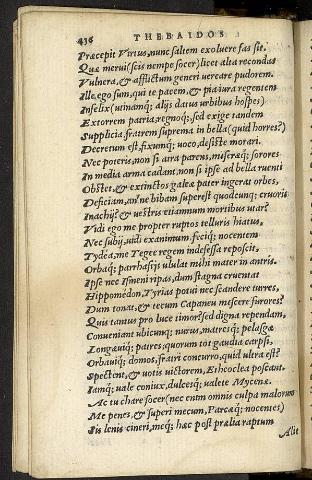 436 THEBAIDOS
Præcepit Virtus, nunc saltem exoluere fas sit.
Quæ merui (scis nempe socer) licet alta recondas
Vulnera, & afflictum generi uereare pudorem.
Ille ego sum, qui te pacem, & pia iura regentem
Infelix (utinamq; alijs datus urbibus hospes)
Extorrem patria, regnoq; sed exige tandem
Supplicia, fratrem suprema in bella (quid horres?)
Decretum est, fixumq; uoco, desiste morari.
Nec poteris, non si atra parens, miseræq; sorores
In media arma cadant, non si ipse ad bella ruenti
Obstet, & extinctos galeæ pater ingerat orbes,
Deficiam, an ne bibam superest quodcunq; cruoris
Inachij? & uestris etiamnum mortibus utar?
Vidi ego me propter ruptos telluris hiatus,
Nec subij, uidi exanimum feciq; nocentem
Tydea, me Tegee regem indefessa reposcit,
Orbaq; parrhasijs ululat mihi mater in antris.
Ipse nec Ismeni ripas, dum stagna cruentat
Hippomedon, Tyrias potui nec scandere turres,
Dum tonat, & tecum Capaneu miscere furores?
Quis tantus pro luce timor? sed digna rependam,
Conueniant ubicunq; nurus, matresq; pelasgæ
Longæuiq; patres, quorum tot gaudia carpsi,
Orbauiq; domos, fratri concurro, quid ultra est?
Spectent, & uotis uictorem, Etheoclea poscant.
Iamq; uale coniux, dulcesq; ualete Mycenæ.
Ac tu chare socer (nec enim omnis culpa malorum
Me penes, & superi mecum, Parcæq; nocentes)
Sis lenis cineri, meq; hæc post prælia raptum
Alit